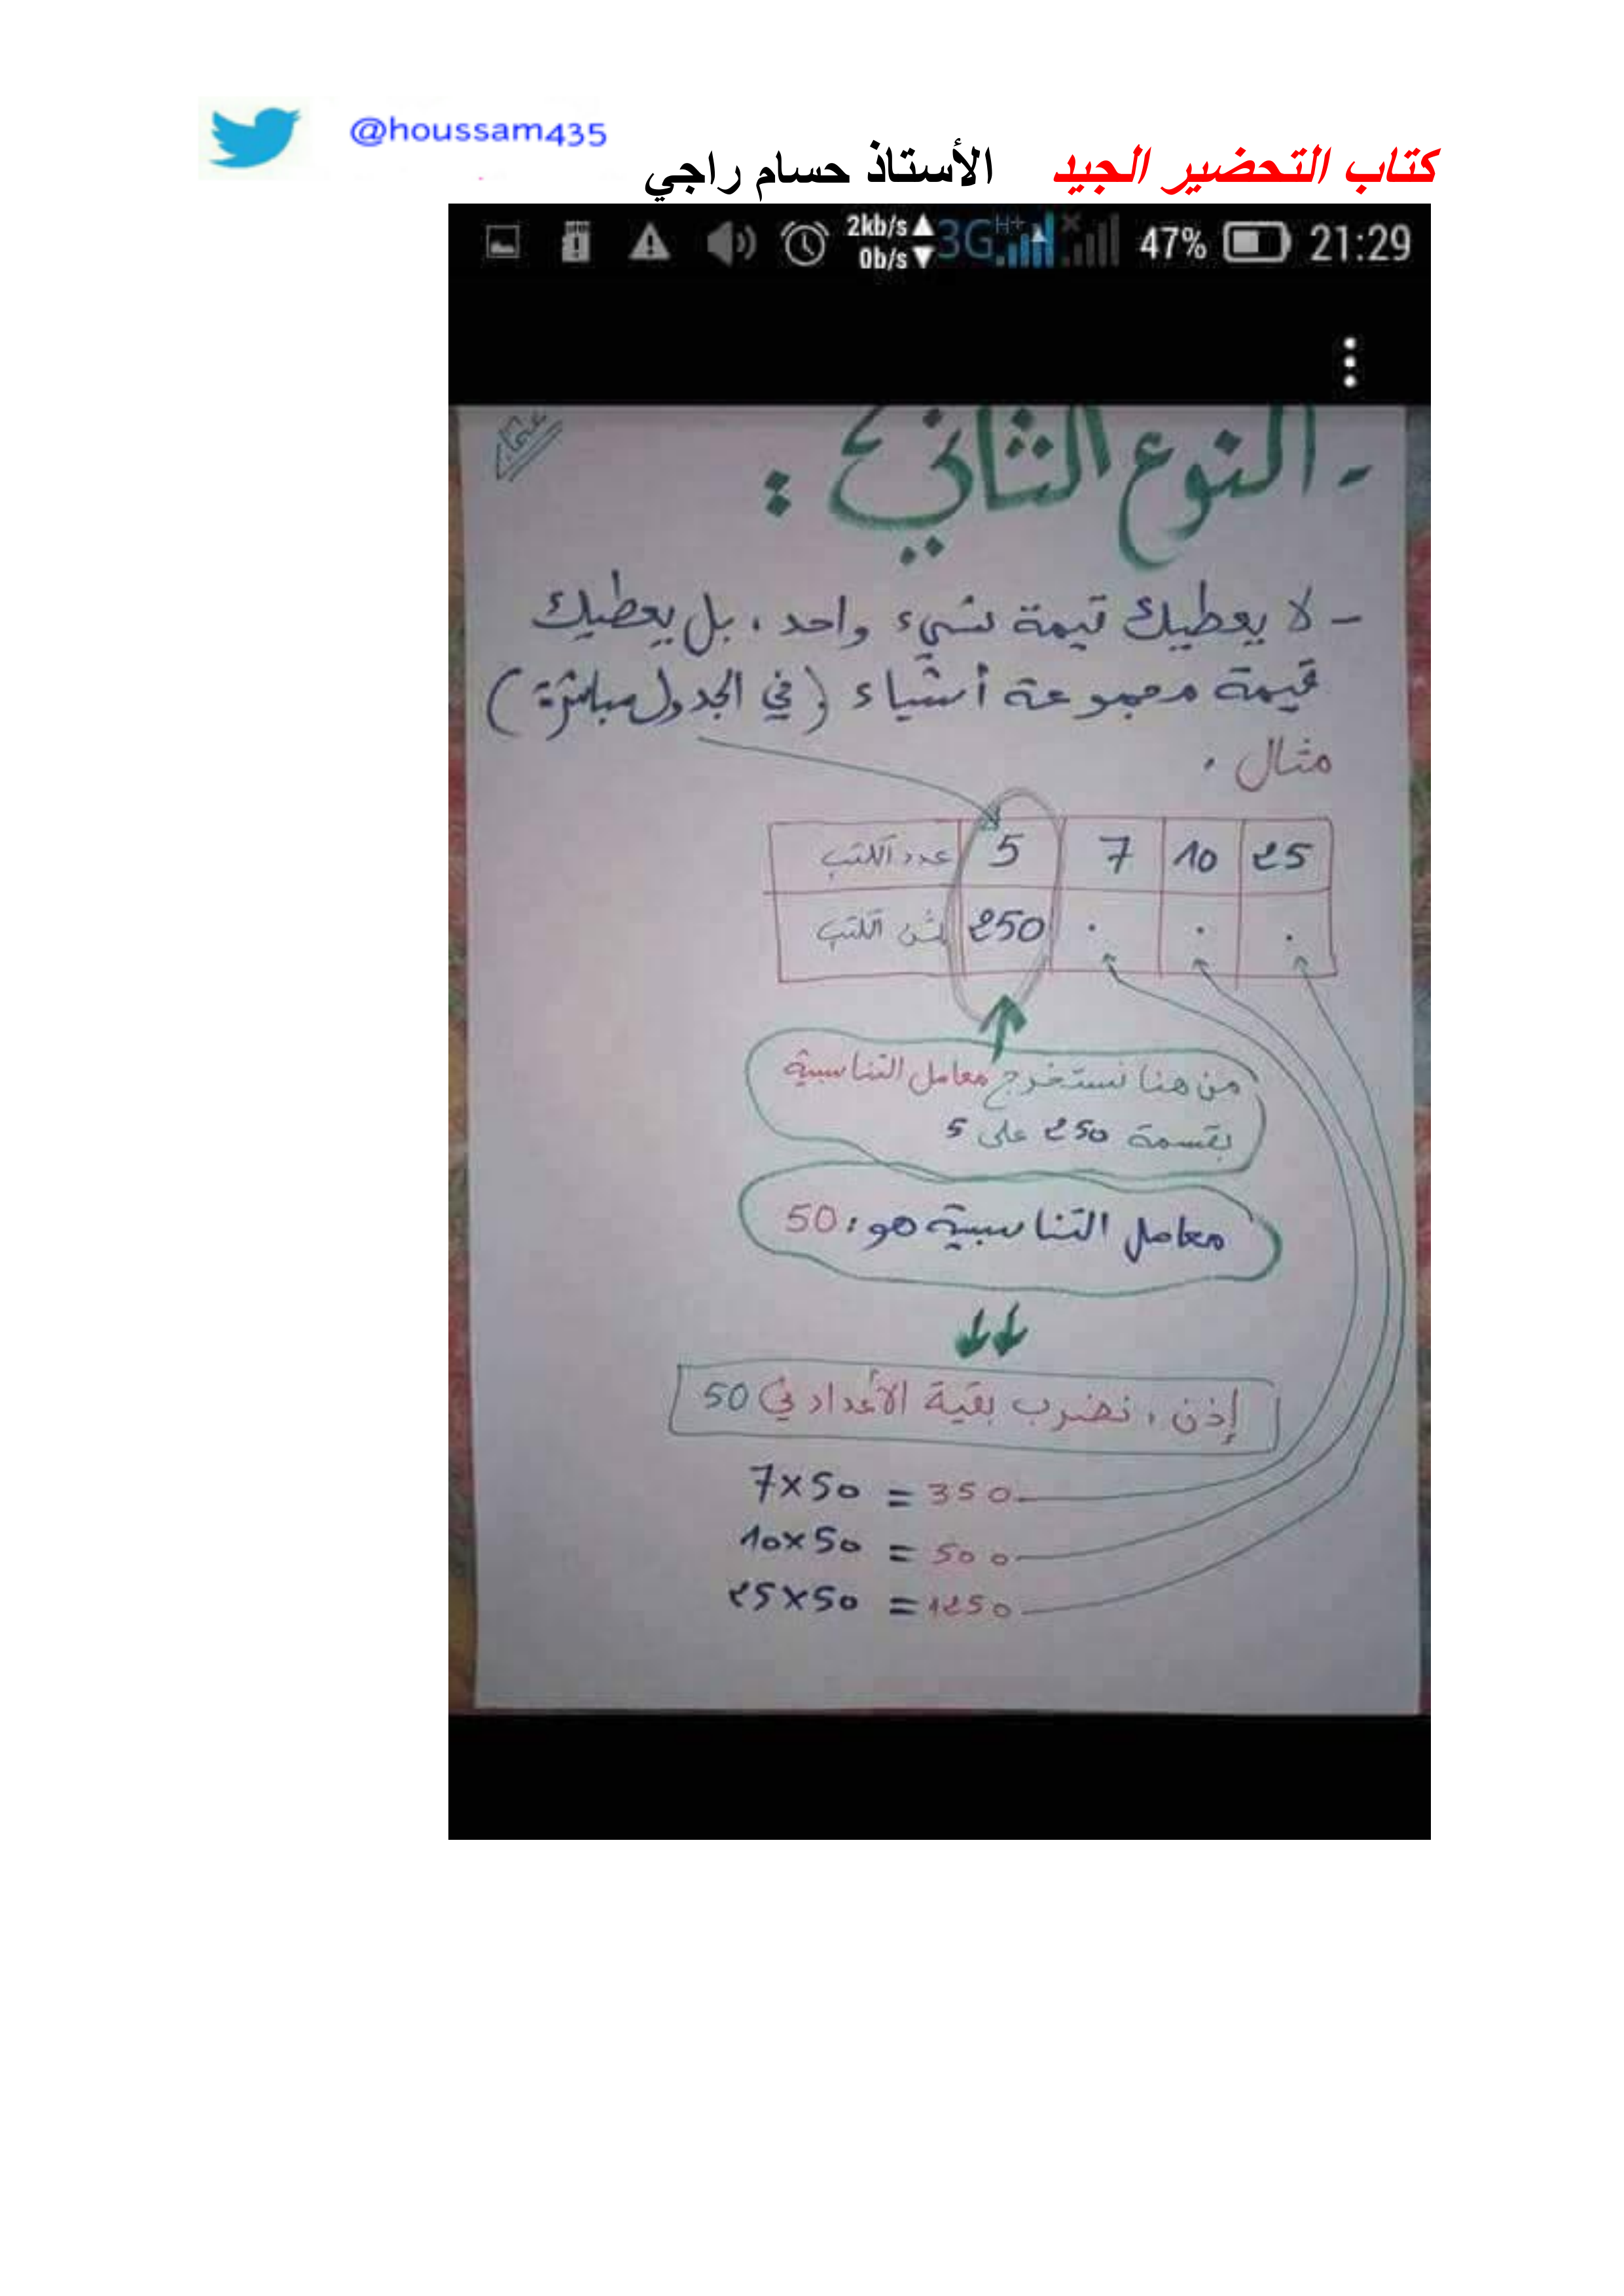 @houssam435
كتاب التحضير الجيد الأستاذ حسام راجي
2kb/s 3G H+ 47% 21:29
0b/s
- النوع الثاني :
- لا يعطيك قيمة شيء واحد ، بل يعطيك
قيمة مجموعة أشياء ( في الجدول مباشرة )
مثال .
عدد الكتب 5 7 10 25
ثمن الكتب 250 . . .
من هنا نستخرج معامل التناسبية
بقسمة 250 على 5
معامل التناسبية هو : 50
إذن ، نضرب بقية الأعداد في 50
7×50 = 350
10×50 = 500
25×50 = 1250